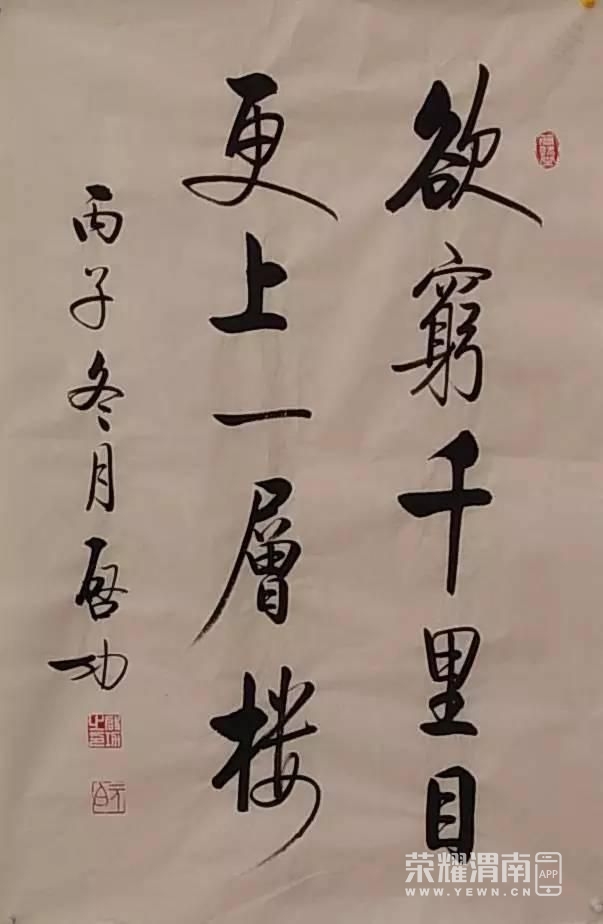 欲窮千里目
更上一層楼
丙子冬月啓功
荣耀渭南APP
WWW.YEWN.CN